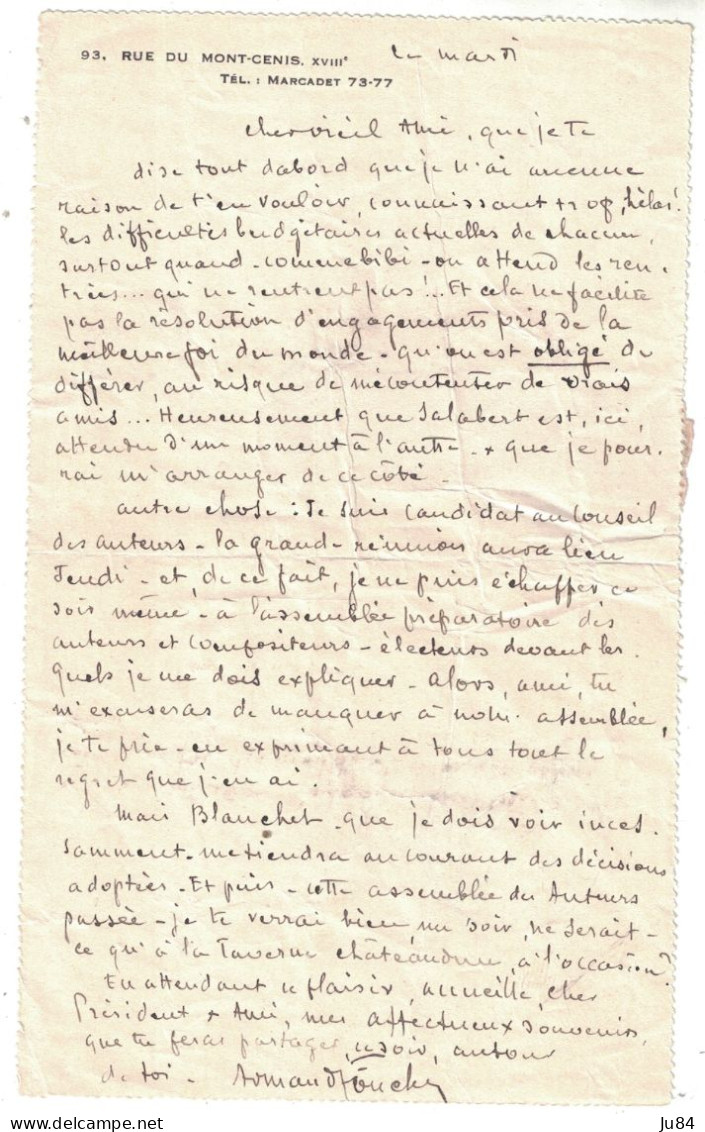 93, RUE DU MONT-CENIS, XVIIIe
TÉL. : MARCADET 73-77
Le mardi
Cher vieil Ami, que je te
dise tout dabord que je n'ai aucune
raison de t'en vouloir, connaissant trop, hélas!
les difficultés budgétaires actuelles de chacun,
surtout quand - comme bibi - on attend les ren-
trées... qui ne rentrent pas!.. Et cela ne facilite
pas la résolution d'engagements pris de la
meilleure foi du monde - qu'on est obligé de
différer, au risque de mécontenter de vrais
amis... Heureusement que Salabert est, ici,
attendu d'un moment à l'autre - & que je pour-
rai m'arranger de ce côté.
autre chose : Je suis candidat au Conseil
des auteurs - la grande réunion aura lieu
Jeudi - et, de ce fait, je ne puis échapper ce
soir même - à l'assemblée préparatoire des
auteurs et compositeurs - électeurs devant les-
quels je me dois expliquer - Alors, ami, tu
m'excuseras de manquer à notre assemblée,
je te prie - en exprimant à tous tout le
regret que j'en ai.
Mais Blanchet - que je dois voir inces-
samment - me tiendra au courant des décisions
adoptées - Et puis - cette assemblée des Auteurs
passée - je te verrai bien un soir, ne serait-
ce qu'à la Taverne châteaudun, à l'occasion?
En attendant ce plaisir, accueille, cher
Président & Ami, mes affectueux souvenirs,
que tu feras partager, ce soir, autour
de toi - Armand Foucher